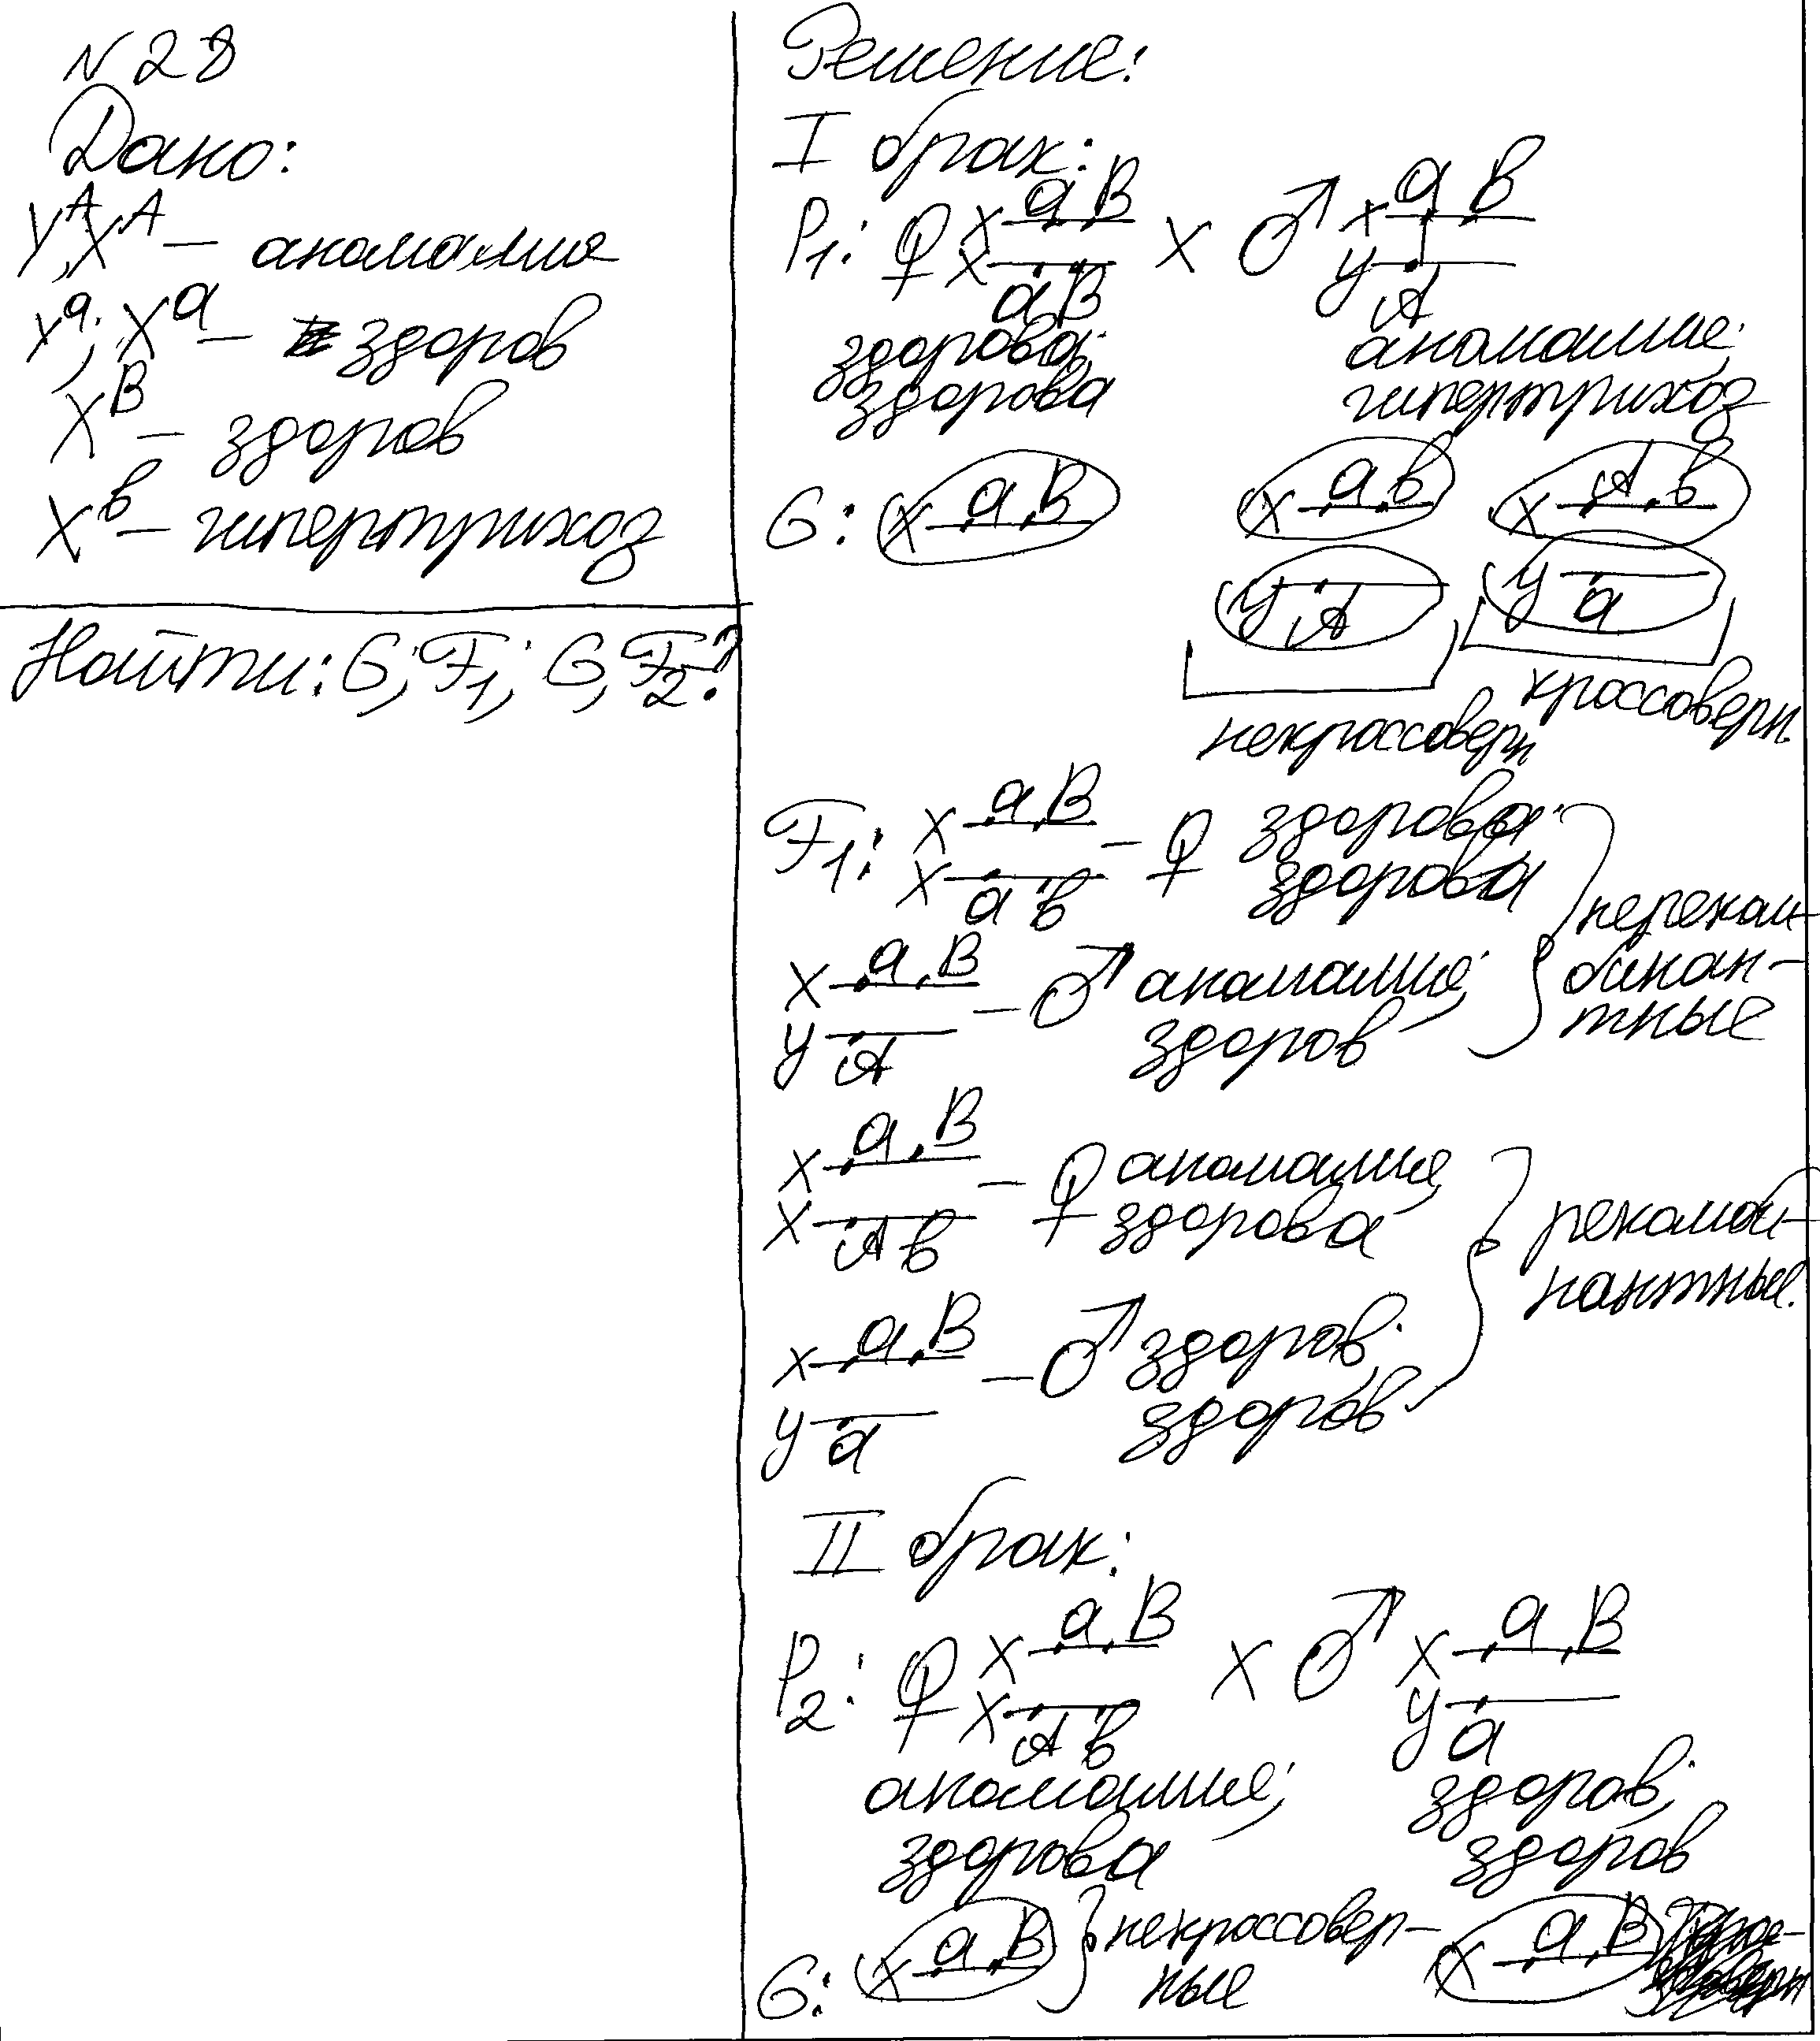 N 28
Дано:
Y^A, X^A – аномалия
x^a; X^a – здоров
X^B – здоров
X^b – гипертрихоз
Найти: G; F1; G, F2?
Решение:
I брак:
P1: ♀ x a B x ♂ x a b
x a B y A
здорова; аномалия;
здорова гипертрихоз
G: x a B x a b x A b
y A y a
некроссоверн кроссоверн.
F1: x a B – ♀ здорова;
x a b здорова
x a B – ♂ аномалия;
y A здоров
нереком-
бинан-
тные
x a B – ♀ аномалия,
x A b здорова
x a B – ♂ здоров;
y a здоров
рекомби-
нантные.
II брак:
P2: ♀ x a B x ♂ x a B
x A b y a
аномалия; здоров;
здорова здоров
G: x a B } некроссовер- x a B
ные